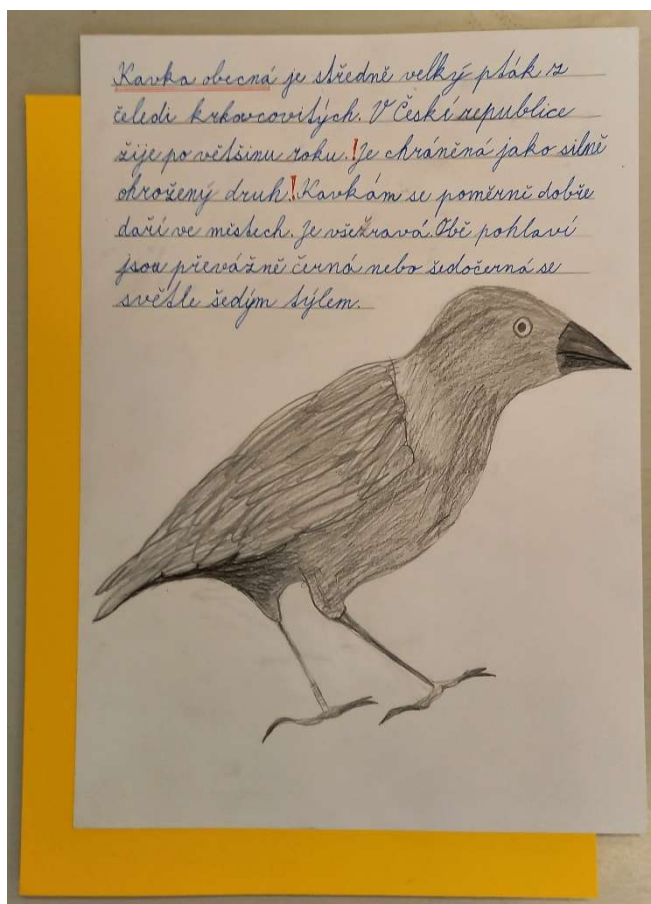 Kavka obecná je středně velký pták z
čeledi krkavcovitých. V České republice
žije po většinu roku. !Je chráněná jako silně
ohrožený druh! Kavkám se poměrně dobře
daří ve městech. Je všežravá. Obě pohlaví
jsou převážně černá nebo šedočerná se
světle šedým týlem.